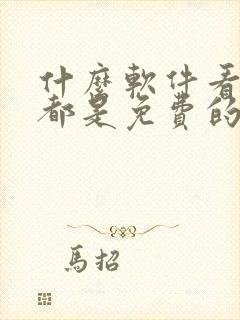 什麼軟件看
都是免費的
馬招